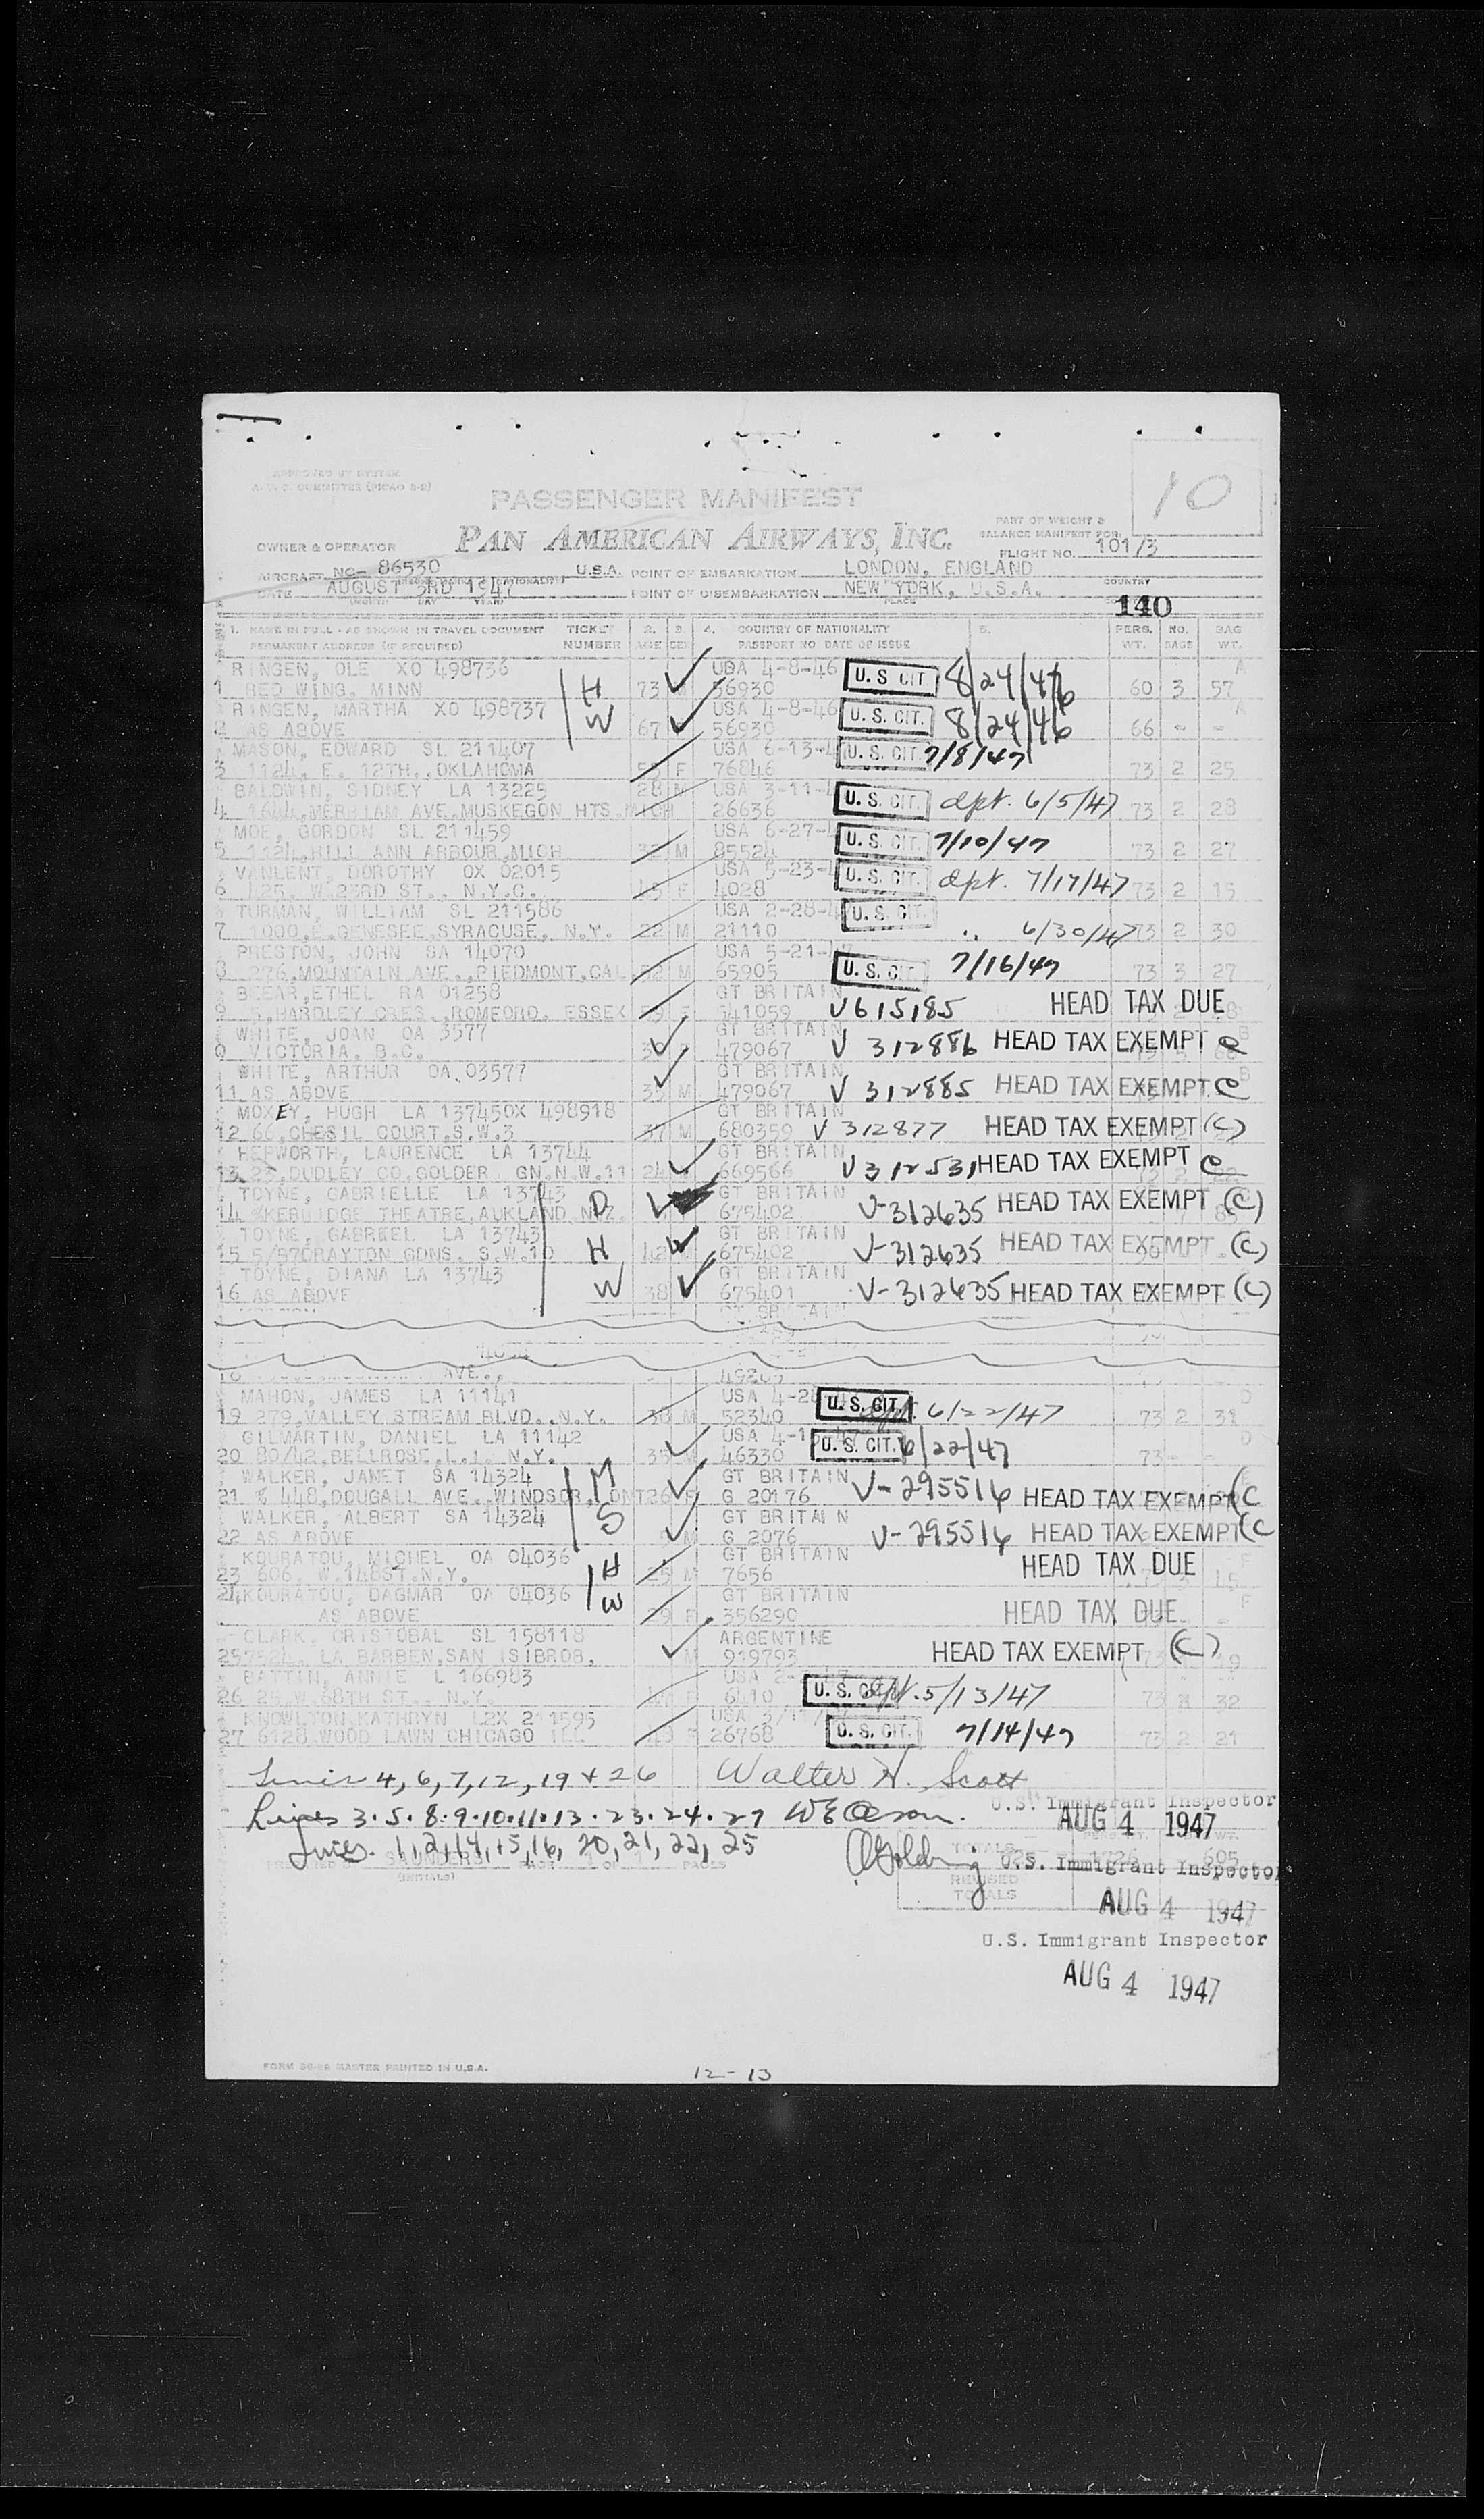 10
PASSENGER MANIFEST
PAN AMERICAN AIRWAYS, INC.
PART OF WEIGHT &
BALANCE MANIFEST FOR
OWNER & OPERATOR
FLIGHT NO. 101/3
AIRCRAFT NC- 86530 U.S.A. POINT OF EMBARKATION LONDON, ENGLAND
DATE AUGUST 3RD 1947 POINT OF DISEMBARKATION NEW YORK, U.S.A. COUNTRY
PLACE
140
1. NAME IN FULL - AS SHOWN IN TRAVEL DOCUMENT TICKET 2. 3. 4. COUNTRY OF NATIONALITY 5. PERS. NO. BAG
PERMANENT ADDRESS (IF REQUIRED) NUMBER AGE SEX PASSPORT NO DATE OF ISSUE WT. BAGS WT.
RINGEN, OLE XO 498736 4-8-46 U.S. CIT. 8/24/46 A
1 RED WING, MINN H 73 M 56930 60 3 57
RINGEN, MARTHA XO 498737 USA 4-8-46 U.S. CIT. 8/24/46 A
2 AS ABOVE W 67 56930 66 - -
MASON, EDWARD SL 211407 USA 6-13- U.S. CIT. 7/8/47
3 1124, E. 12TH., OKLAHOMA F 76846 73 2 25
BALDWIN, SIDNEY LA 13225 28 M USA 3-11- U.S. CIT. dpt. 6/5/47
4 1644, MERRIAM AVE. MUSKEGON HTS. MICH 26636 73 2 28
MOE, GORDON SL 211459 USA 6-27- U.S. CIT. 7/10/47
5 HILL ANN ARBOUR, MICH M 85524 73 2 27
VANLENT, DOROTHY OX 02015 USA 5-23- U.S. CIT. dpt. 7/17/47
6 425, W. 23RD ST., N.Y.C. F 4028 73 2 15
TURMAN, WILLIAM SL 211586 USA 2-28- U.S. CIT.
7 1000, E. GENESEE, SYRACUSE, N.Y. 22 M 21110 " 6/30/47 73 2 30
PRESTON, JOHN SA 14070 USA 5-21- 7/16/47
8 276, MOUNTAIN AVE., PIEDMONT, CAL M 65905 U.S. CIT. 73 3 27
BEEAR, ETHEL RA 01258 GT BRITAIN
9 5, HARDLEY CRES., ROMFORD, ESSEX 541059 V615185 HEAD TAX DUE
WHITE, JOAN OA 3577 GT BRITAIN
0 VICTORIA, B.C. 479067 V 312886 HEAD TAX EXEMPT C
WHITE, ARTHUR OA 03577 GT BRITAIN
11 AS ABOVE 35 M 479067 V 312885 HEAD TAX EXEMPT C
MOXEY, HUGH LA 13745OX 498918 GT BRITAIN
12 66, CHESIL COURT, S.W.3 37 M 680359 V 312877 HEAD TAX EXEMPT (C)
HEPWORTH, LAURENCE LA 13744 GT BRITAIN
13 23, DUDLEY CO, GOLDER GN. N.W.11 669566 V312531 HEAD TAX EXEMPT C
TOYNE, GABRIELLE LA 13743 D GT BRITAIN
14 THEATRE, AUKLAND N.Z. 675402 V-312635 HEAD TAX EXEMPT (C)
TOYNE, GABRIEL LA 13743 GT BRITAIN
15 5/57 DRAYTON GDNS. S.W.10 H 42 M 675402 V-312635 HEAD TAX EXEMPT (C)
TOYNE, DIANA LA 13743 GT BRITAIN
16 AS ABOVE W 38 675401 V-312635 HEAD TAX EXEMPT (C)
AVE.,
MAHON, JAMES LA 11141 USA 4-28 D
19 279, VALLEY STREAM BLVD., N.Y. M 52340 U.S. CIT. dpt. 6/22/47 73 2 31
GILMARTIN, DANIEL LA 11142 USA D
20 80/42, BELLROSE, L.I. N.Y. 35 M 46330 U.S. CIT. 6/22/47 73 - -
WALKER, JANET SA 14324 M GT BRITAIN
21 % 448, DOUGALL AVE., WINDSOR, ONT 26 F G 20176 V-295516 HEAD TAX EXEMPT (C
WALKER, ALBERT SA 14324 S GT BRITAIN
22 AS ABOVE M G 2076 V-295516 HEAD TAX EXEMPT (C
KOURATOU, MICHEL OA 04036 H GT BRITAIN
23 606, W. 148ST. N.Y. M 7656 HEAD TAX DUE
24 KOURATOU, DAGMAR OA 04036 W GT BRITAIN F
AS ABOVE F 356290 HEAD TAX DUE
CLARK, CRISTOBAL SL 158118 ARGENTINE
25 LA BARBEN, SAN ISIBROB, M 919793 HEAD TAX EXEMPT (C)
BATTIN, ANNIE L 166983 USA
26 W. 68TH ST., N.Y. 6410 U.S. CIT. dpt. 5/13/47 73 3 32
KNOWLTON, KATHRYN L2X 211595 USA
27 6128, WOOD LAWN CHICAGO ILL F 26768 U.S. CIT. 7/14/47 73 2 21
Lines 4, 6, 7, 12, 19 + 26 Walter H. Scott
U.S. Immigrant Inspector
Lines 3. 5. 8. 9. 10. 11. 13. 23. 24. 27
AUG 4 1947
Lines. 1, 2, 14, 15, 16, 20, 21, 22, 25
TOTALS 605
U.S. Immigrant Inspector
REVISED
TOTALS
AUG 4 1947
U.S. Immigrant Inspector
AUG 4 1947
MASTER PRINTED IN U.S.A.
12-13